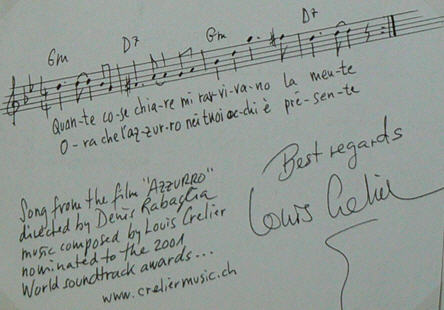 Gm D7 Gm D7
Quan-te co-se chia-re mi rav-vi-va-no la men-te
O-ra che l'az-zur-ro nei tuoi oc-chi è pre-sen-te
Best regards
Louis Crelier
Song from the film "AZZURRO"
directed by Denis Rabaglia
music composed by Louis Crelier
nominated to the 2001
World soundtrack awards...
www.creliermusic.ch